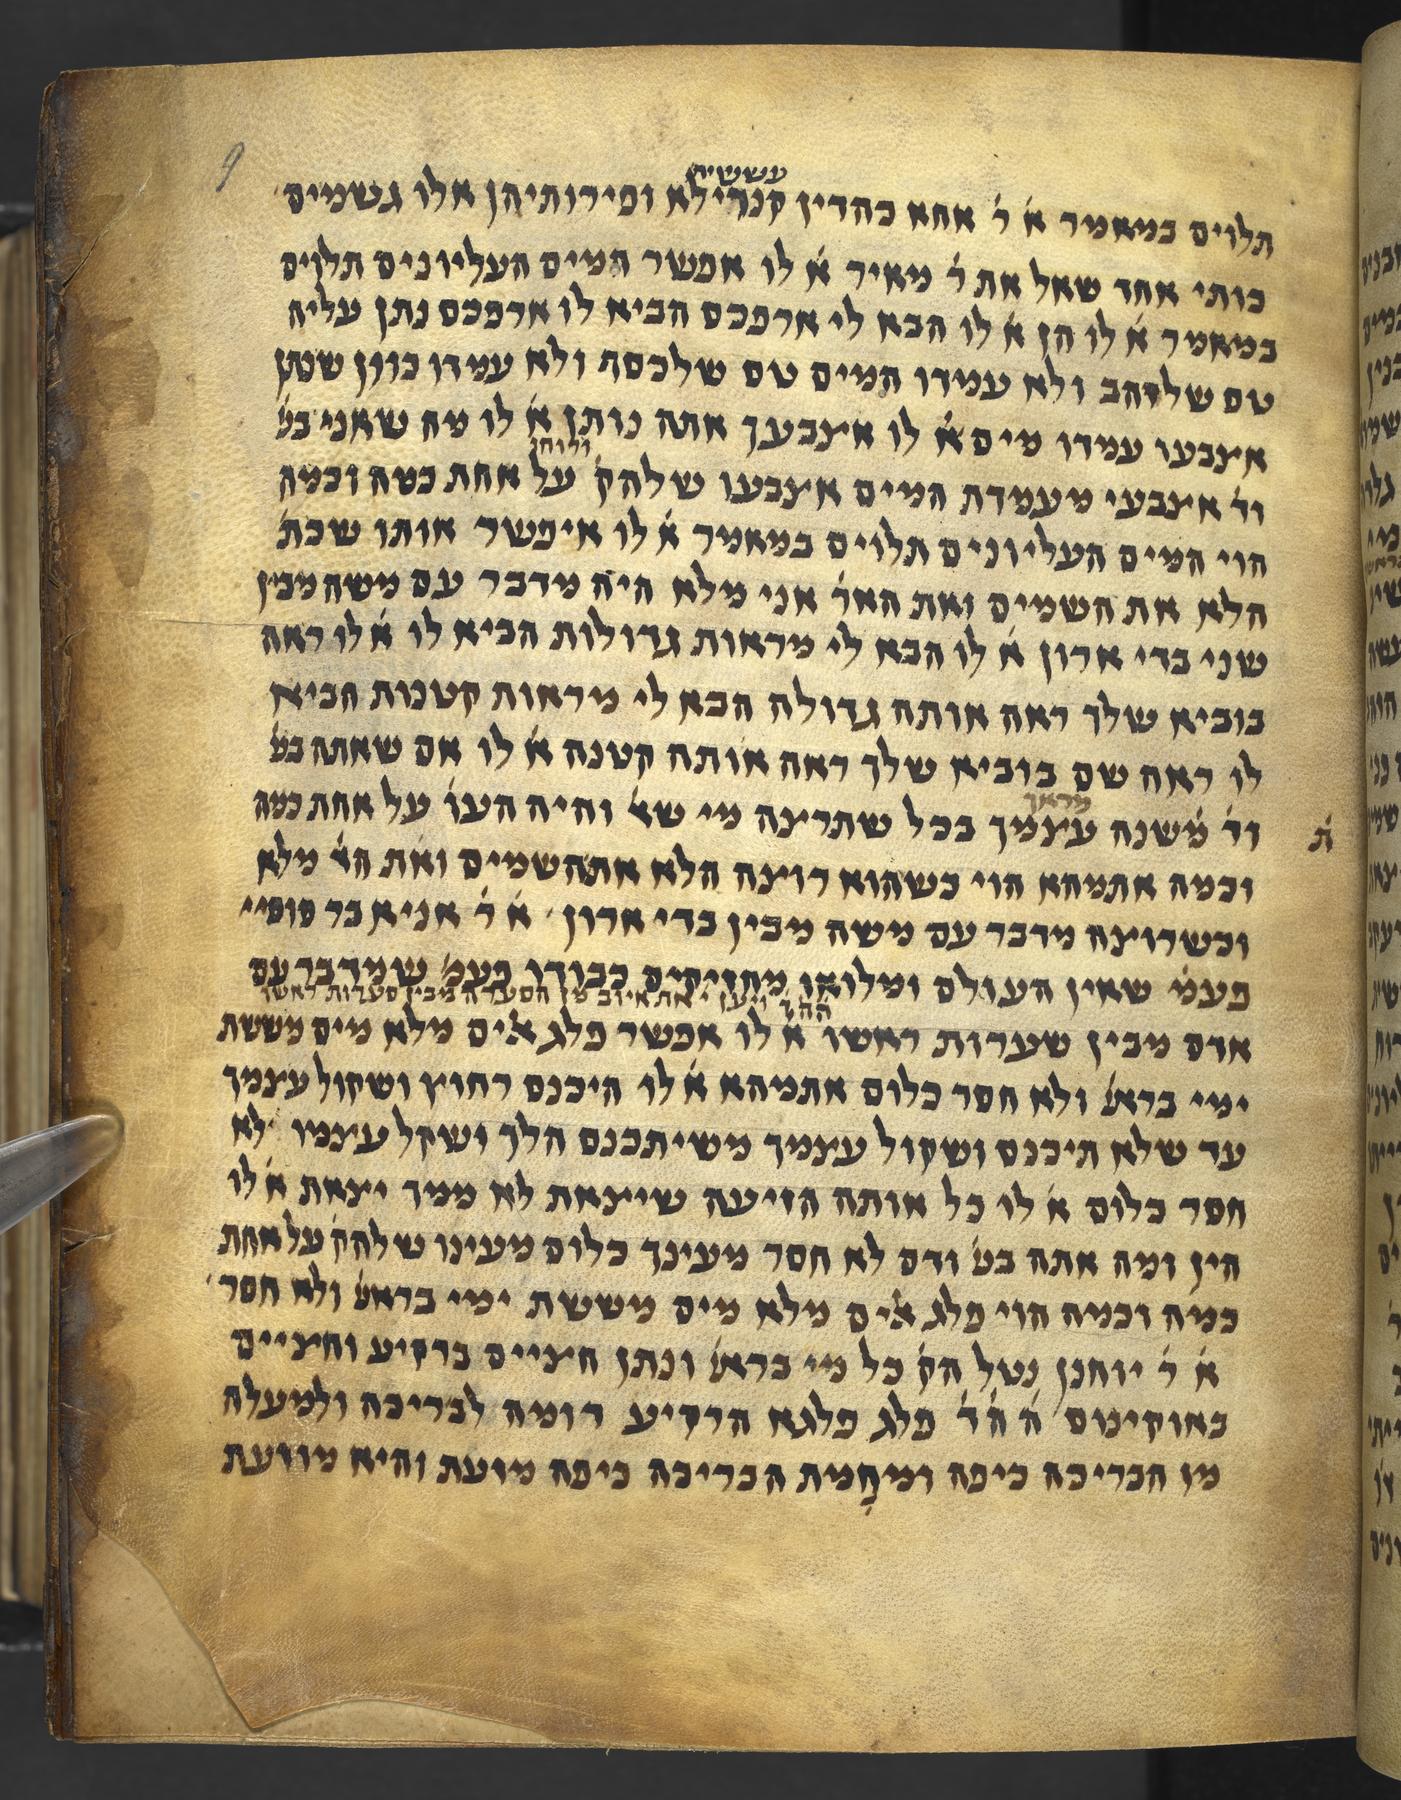 עששית
תלוים במאמר א׳ ר׳ אחא כהדין קנדילא ופירותיהן אלו גשמים
כותי אחד שאל את ר׳ מאיר א׳ לו אפשר המים העליונים תלוים
במאמר א׳ לו הן א׳ לו הבא לי ארפכס הביא לו ארפכס נתן עליה
טס שלזהב ולא עמידו המים טס שלכסף ולא עמידו כוון שנתן
אצבעו עמדו מים א׳ לו אצבעך אתה נותן א׳ לו מה שאני בש׳
ור׳ אצבעי מעמדת המים אצבעו שלהק׳ על אחת כמה וכמה
הוי המים העליונים תלוים במאמר א׳ לו איפשר אותו שכת׳
הלא את השמים ואת האר׳ אני מלא היה מדבר עם משה מבין
שני בדי ארון א׳ לו הבא לי מראות גדולות הביא לו א׳ לו ראה
בוביא שלך ראה אותה גדולה הבא לי מיראות קטנות הביא
לו ראה שם בוביא שלך ראה אותה קטנה א׳ לו אם שאתה בש׳
מראך
וד׳ משנה עצמך בכל שתרצה מי שא׳ והיה העו׳ על אחת כמה
וכמה אתמהא הוי כשהוא רוצה הלא את השמים ואת הא׳ מלא
וכשרוצה מדבר עם משה מבין בדי ארון א׳ ר׳ אניא בר סוסיי
פעמ׳ שאין העולם ומלואו מחזיקים כבודו פעמ׳ שמדבר עם
הה״ד ויען י׳ את איוב מן הסערה מבין סערות ראשו
אדם מבין שערות ראשו א׳ לו אפשר פלג אלים מלא מים מששת
ימי ברא׳ ולא חסר כלום אתמהא א׳ לו היכנס רחוץ ושקול עצמך
עד שלא תיכנס ושקול עצמך משיתכנס הלך ושקל עצמו לא
חסר כלום א׳ לו כל אותה הזיעה שיצאת לא ממך יצאת א׳ לו
הין ומה אתה בש׳ ודם לא חסר מעינך כלום מעינו שלהק׳ על אחת
כמה וכמה הוי פלג אלים מלא מים מששת ימי ברא׳ ולא חסר
א׳ ר׳ יוחנן נטל הק׳ כל מי ברא׳ ונתן חציים ברקיע וחציים
באוקינוס ה׳ ה׳ ד׳ פלג פלגא הרקיע דומה לבריכה ולמעלה
מן הבריכה כיפה ומחמת הבריכה כיפה מזעת והיא מזועת